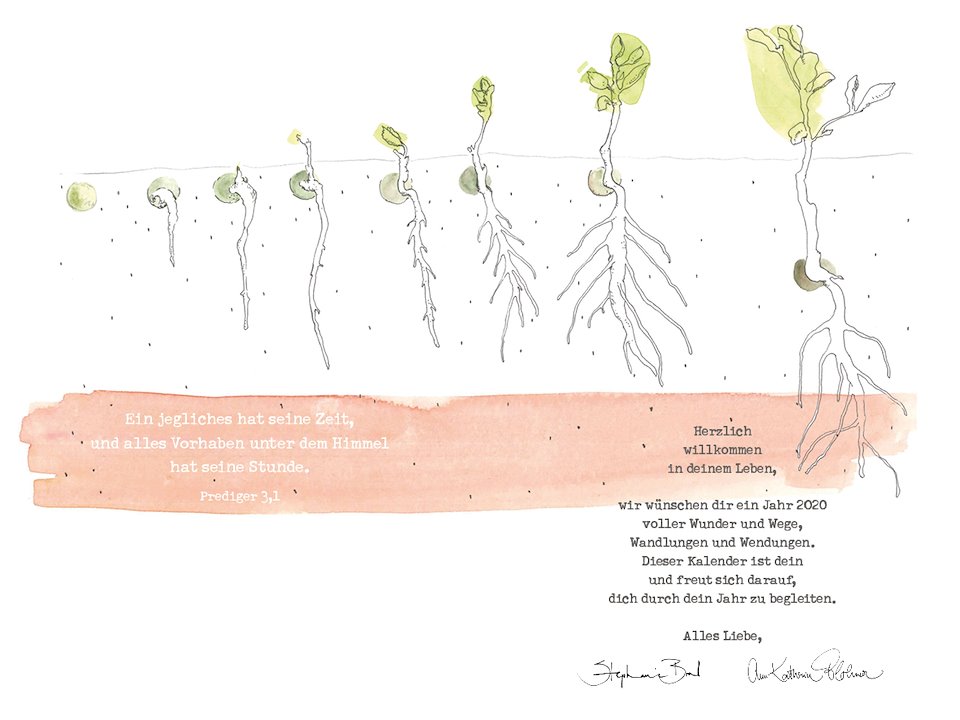 Ein jegliches hat seine Zeit,
und alles Vorhaben unter dem Himmel
hat seine Stunde.
Prediger 3,1
Herzlich
willkommen
in deinem Leben,
wir wünschen dir ein Jahr 2020
voller Wunder und Wege,
Wandlungen und Wendungen.
Dieser Kalender ist dein
und freut sich darauf,
dich durch dein Jahr zu begleiten.
Alles Liebe,